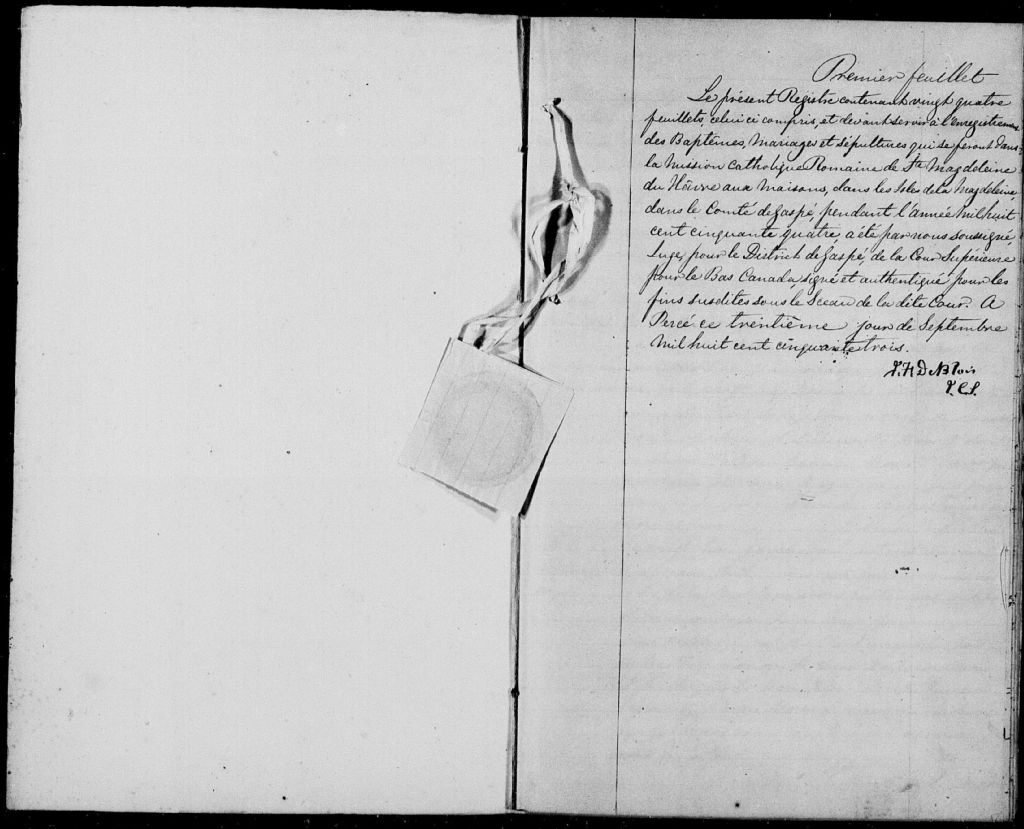 Premier feuillet
Le présent Registre contenant vingt quatre
feuillets, celui ci compris, et devant servir à l'enregistrement
des Baptêmes, Mariages et sépultures qui se feront dans
la Mission Catholique Romaine de Ste Magdeleine
du Hâvre aux Maisons, dans les Isles de la Magdeleine,
dans le Comté de Gaspé, pendant l'année Mil huit
cent cinquante quatre, a été par nous soussigné,
Juge, pour le District de Gaspé, de la Cour Supérieure
pour le Bas Canada, signé et authentiqué pour les
fins susdites sous le Sceau de la dite Cour. A
Percé ce trentième jour de Septembre
Mil huit cent cinquante trois.
DeBlois
J.C.S.